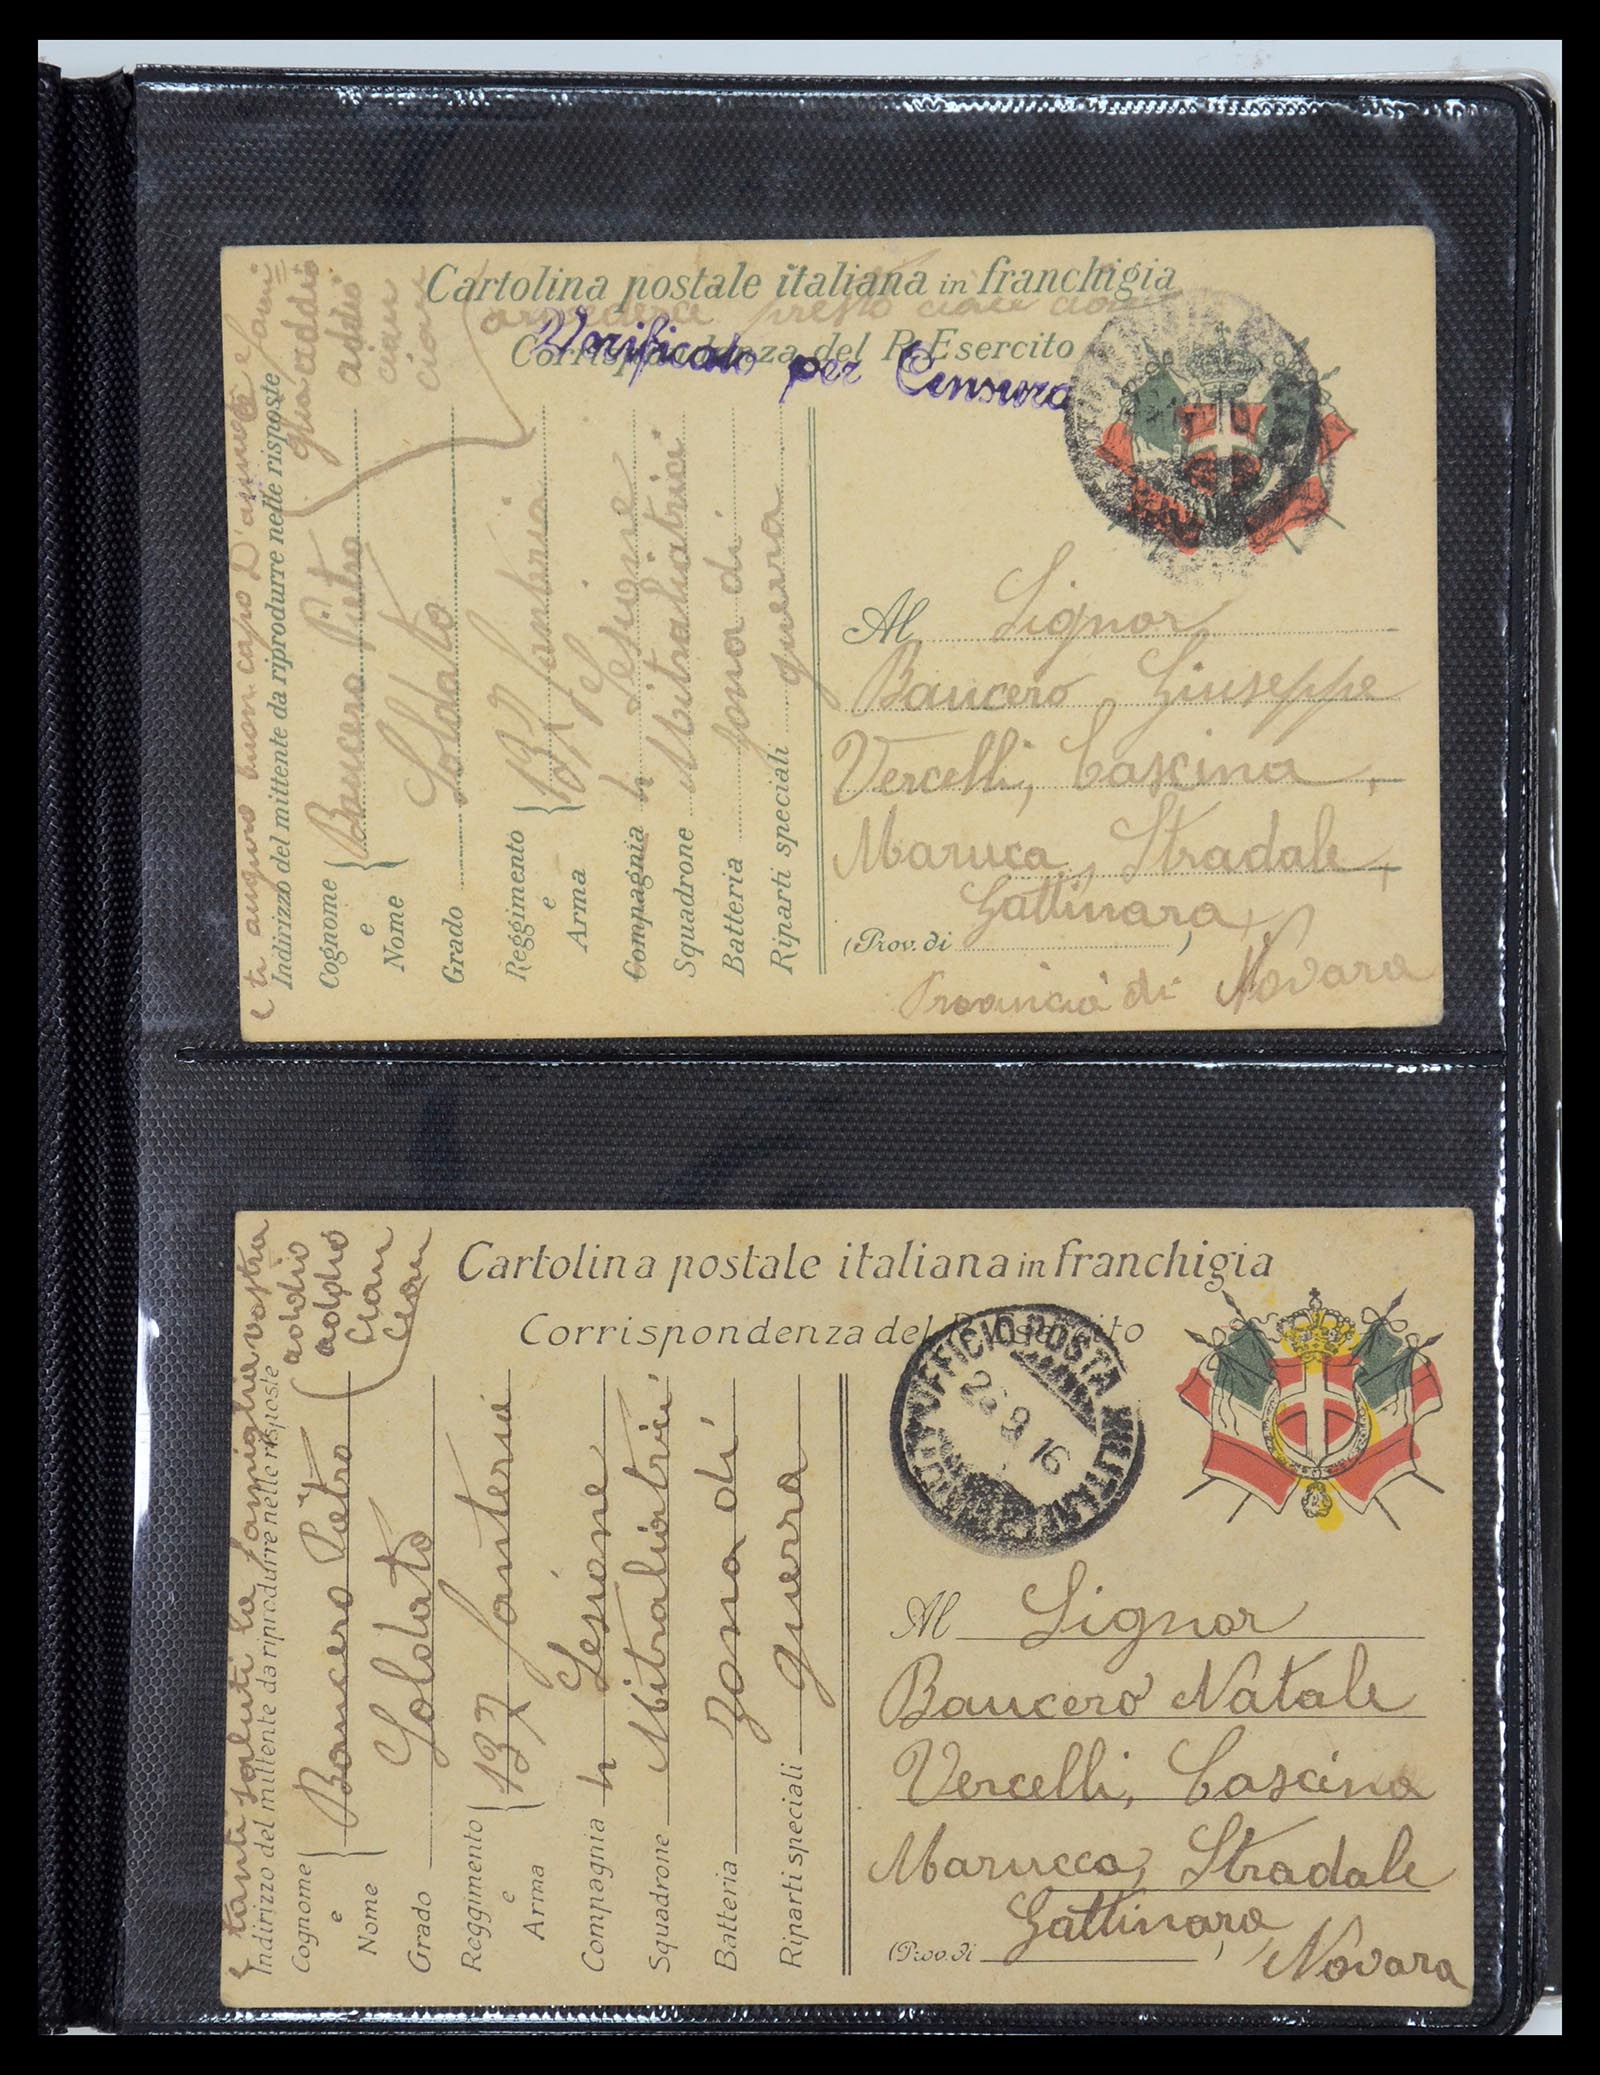 Cartolina postale italiana in franchigia
arivederci presto ciau ciau
Corrispondenza del R. Esercito
Verificato per Censura
e ti auguro buon capo D'anno e fami
glia addio
addio
ciau
ciau
Indirizzo del mittente da riprodurre nelle risposte
Cognome e Nome { Baucero Pietro
Grado Soldato
Reggimento e Arma { 137 fanteria
Compagnia 4 Sesione
Squadrone Mitraliatrici
Batteria zona di
Riparti speciali guerra
Al Signor
Baucero Giuseppe
Vercelli, Cascina
Maruca, Stradale
Gattinara
(Prov. di )
Provincia di Novara
Cartolina postale italiana in franchigia
Corrispondenza del R. Esercito
UFFICIO POSTA MILITARE
9 16
e tanti saluti la famiglie vostra
addio
addio
Ciau
Ciau
Indirizzo del mittente da riprodurre nelle risposte
Cognome e Nome { Baucero Pietro
Grado Soldato
Reggimento e Arma { 137 fanteria
Compagnia 4 Sesione
Squadrone Mitraliatrici
Batteria zona di
Riparti speciali guerra
Al Signor
Baucero Natale
Vercelli, Cascina
Marucca, Stradale
Gattinara
(Prov. di )
Novara